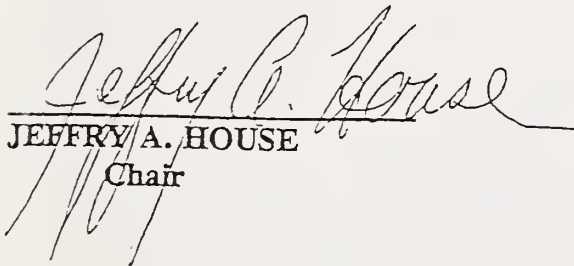 Jeffry A. House
JEFFRY A. HOUSE
Chair